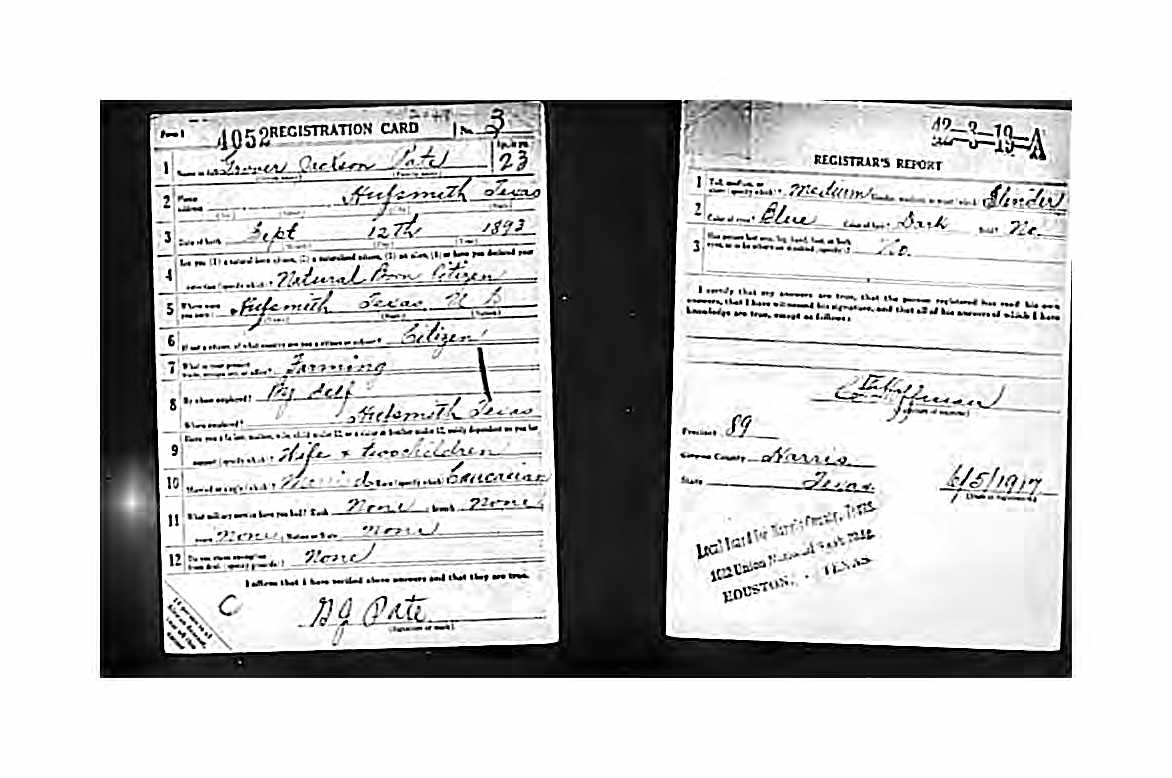 Form 1 4052 REGISTRATION CARD No. 3
1 Name in full Grover Jackson Pate Age, in yrs. 23
2 Home address Hufsmith Texas
3 Date of birth Sept 12th 1893
4 Are you (1) a natural born citizen, (2) a naturalized citizen, (3) an alien, (4) or have you declared your
intention (specify which)? Natural Born Citizen
5 Where were you born? Hufsmith Texas U S
6 If not a citizen, of what country are you a citizen or subject? Citizen
7 What is your present trade, occupation, or office? Farming
8 By whom employed? By Self
Where employed? Hufsmith Texas
9 Have you a father, mother, wife, child under 12, or a sister or brother under 12, solely dependent on you for
support (specify which)? Wife + two children
10 Married or single (which)? Married Race (specify which)? Caucasian
11 What military service have you had? Rank None branch None
years None Nation or State None
12 Do you claim exemption from draft (specify grounds)? None
I affirm that I have verified above answers and that they are true.
C
G J Pate
(Signature or mark)
42-3-19-A
REGISTRAR'S REPORT
1 Tall, medium, or short (specify which)? Medium Slender, medium, or stout (which)? Slender
2 Color of eyes? Blue Color of hair? Dark Bald? No.
3 Has person lost arm, leg, hand, foot, or both eyes, or is he otherwise disabled (specify)? No.
I certify that my answers are true, that the person registered has read his own
answers, that I have witnessed his signature, and that all of his answers of which I have
knowledge are true, except as follows:
Hoffman
(Signature of registrar)
Precinct 89
City or County Harris
State Texas 6/5/1917
(Date of registration)
Local Board for Harris County, Texas,
1012 Union National Bank Bldg.
HOUSTON, - TEXAS